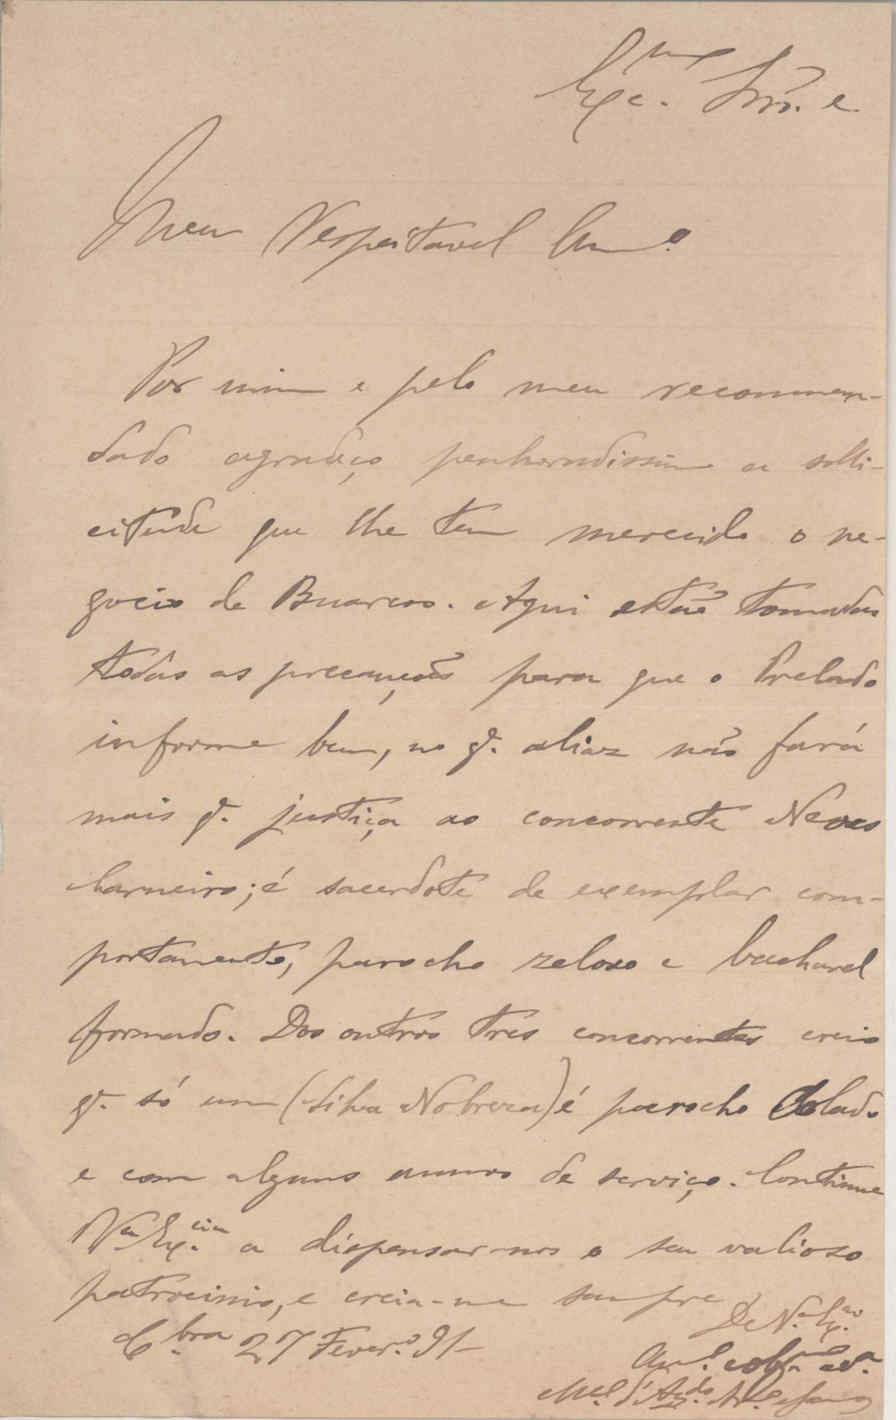 Exc.mo Snr. e
Meu Respeitavel Am.º
Por mim e pelo meu recommen-
dado agradeço penhoradissimo a solli-
citude que lhe tem merecido o ne-
gocio de Buarcos. Aqui estão tomadas
todas as precauções para que o Prelado
informe bem, no q. aliaz não fará
mais q. justiça ao concorrente Neves
Carneiro; é sacerdote de exemplar com-
portamento, parocho zeloso e bacharel
formado. Dos outros tres concorrentes creio
q. só um (Silva Nobreza) é parocho Collado
e com alguns annos de serviço. Continue
V.a Ex.cia a dispensar-nos o seu valioso
patrocinio, e creia-me sempre
De V. Ex.cia
C.bra 27 Fever.º 91
Am.º
Mel. d'Az.do